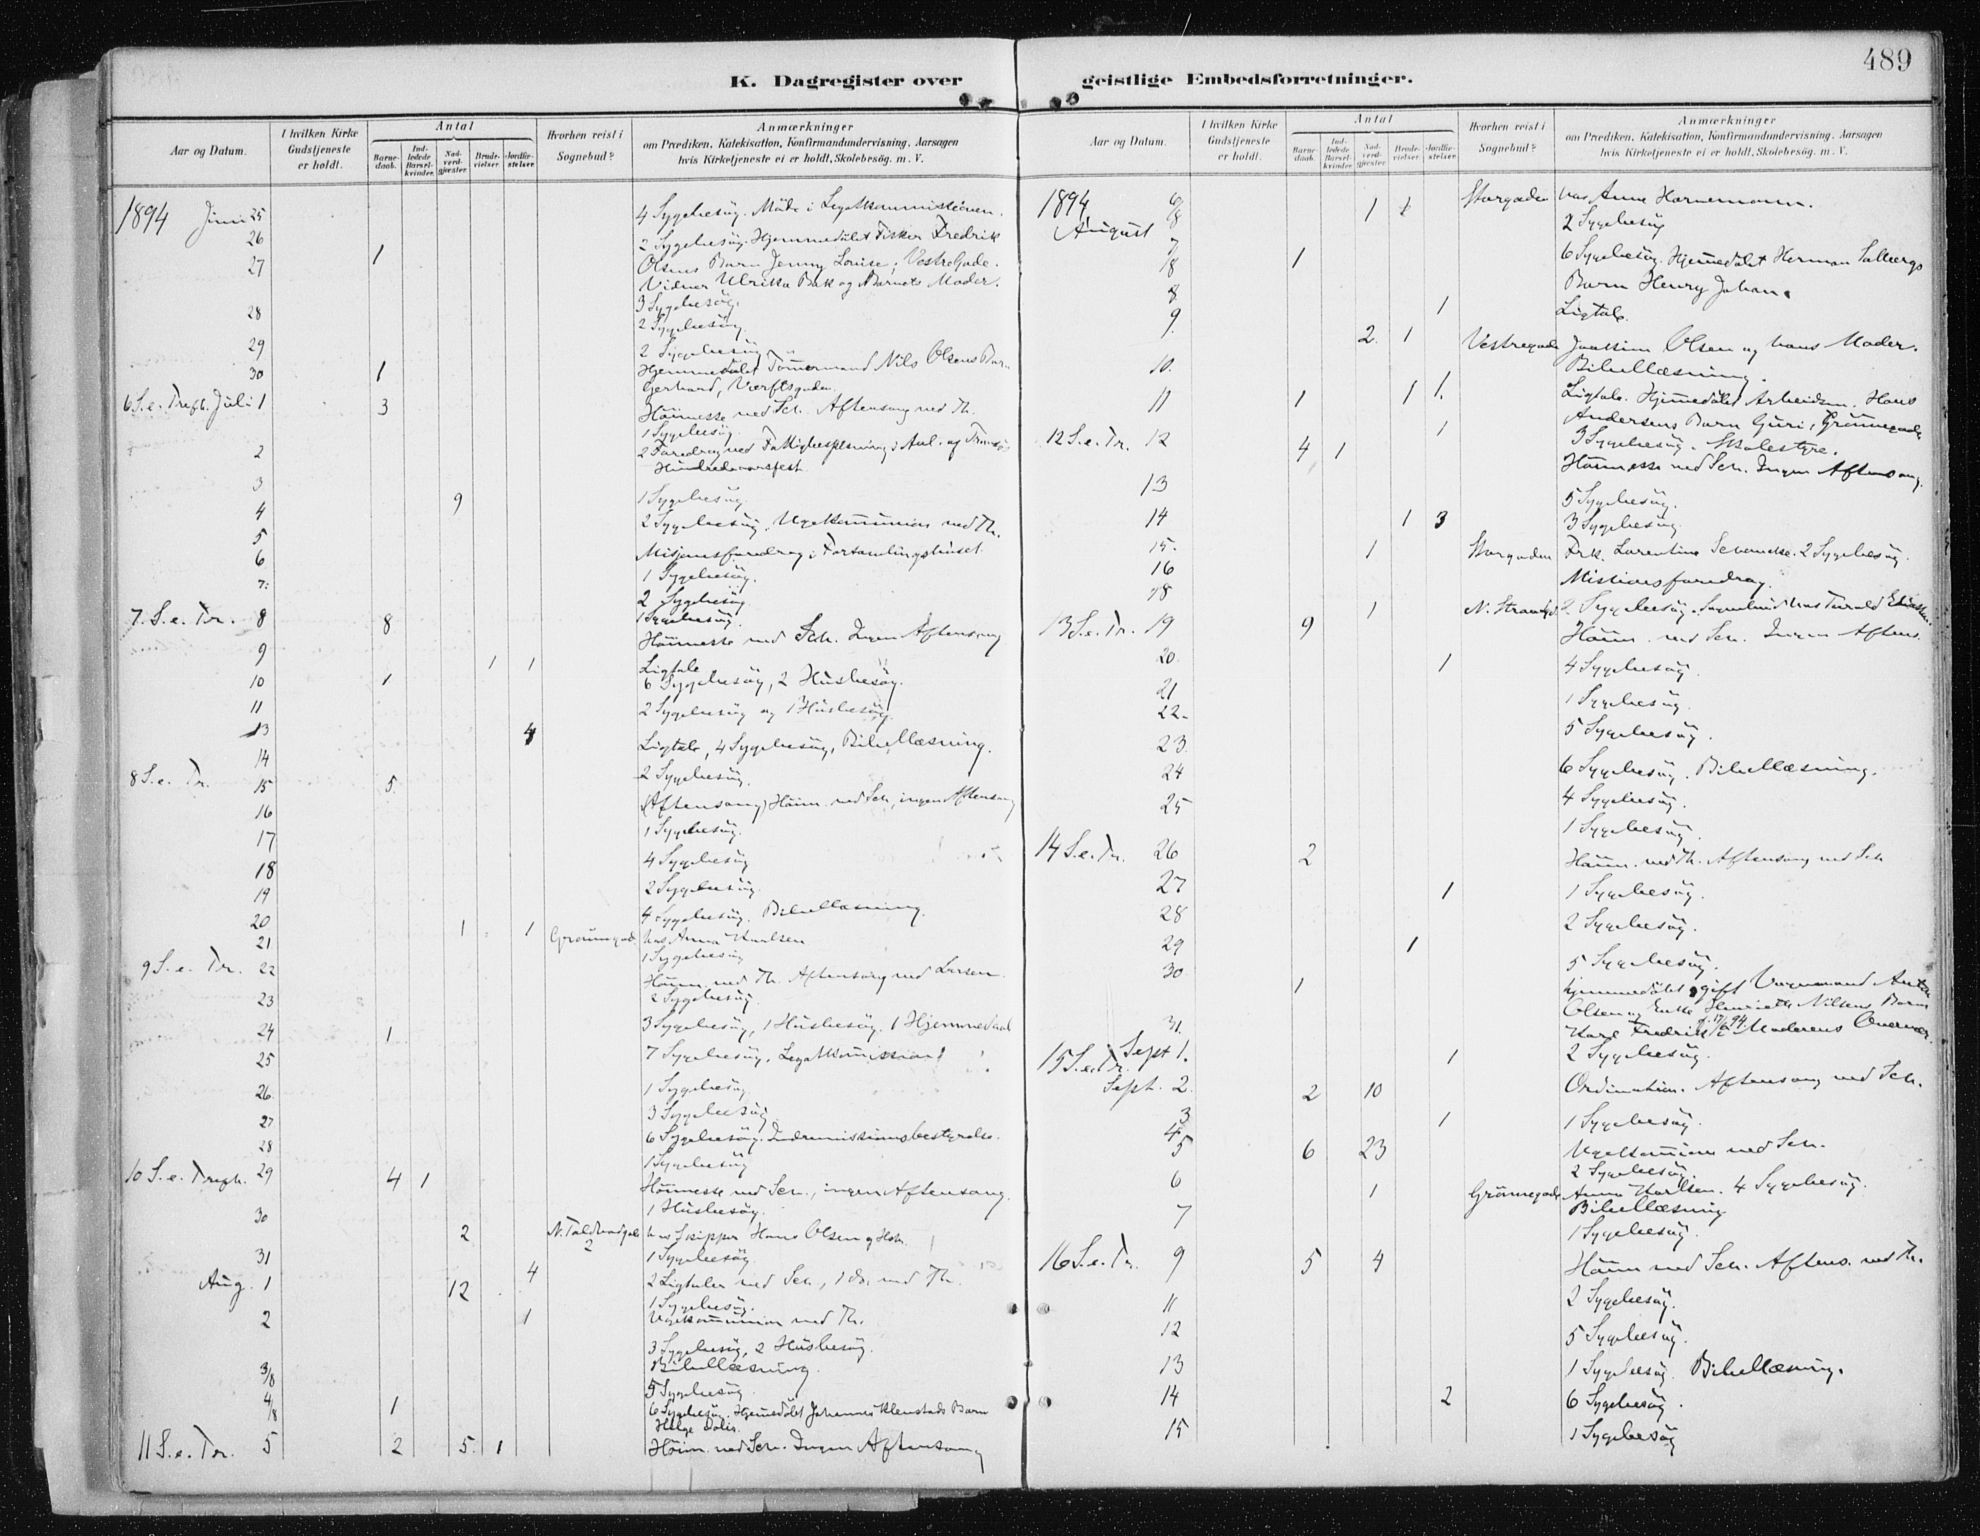 489
K. Dagregister over geistlige Embedsforretninger.
Aar og Datum.
I hvilken Kirke Gudstjeneste er holdt.
Antal
Barnedaab.
Indledede Barselkvinder.
Nadverdgjester
Brudevielser.
Jordfæstelser
Hvorhen reist i Sognebud?
Anmærkninger
om Prædiken, Katekisation, Konfirmandundervisning, Aarsagen
hvis Kirketjeneste ei er holdt, Skolebesøg. m. V.
1894 Juni 25 4 Sygebesøg. Møde i Legatkommissionen.
26 2 Sygebesøg. Hjemmedøbt Fisker Fredrik
27 1 Olsens Barn Jenny Louise, Vestregade.
Vidner Ulrikka Bak og Barnets Moder.
3 Sygebesøg.
28 2 Sygebesøg.
29 2 Sygebesøg
30 1 Hjemmedøbt Tömmermand Nils Olsens Barn
Gerhard, Værftsgaden.
6 S. e. Trefh. Juli 1 3 Höimesse ved Sch. Aftensang ved Th.
1 Sygebesøg.
2 2 Foredrag ved Fattigbespisning i Anl. af Tromsø
Hundredaarsfest.
3 1 Sygebesøg.
4 9 2 Sygebesøg. Ugekommunion ved Th.
5 Misjonsforedrag i Forsamlingshuset
6 1 Sygebesøg.
7. 2 Sygebesøg
1 Sygebesøg.
7. S. e. Tr. 8 8 Höimesse ved Sch. Ingen Aftensang
9 1 1 Ligtale
10 1 6 Sygebesøg, 2 Husbesøg.
11 2 Sygebesøg og 1 Husbesøg.
13 4 Ligtale, 4 Sygebesøg, Bibellæsning.
14 2 Sygebesøg.
8 S. e. Tr. 15 5. (Aftensang) Höim. ved Sch., ingen Aftensang
16 1 Sygebesøg.
17 4 Sygebesøg
18 2 Sygebesøg.
19 4 Sygebesøg. Bibellæsning.
20 1 1 Grönnegad. hos Anna Karlsen
21 1 Sygebesøg
9 S. e. Tr. 22 Höim. ved Th. Aftensang ved Larsen.
23 2 Sygebesøg.
24 1 3 Sygebesøg, 1 Husbesøg. 1 Hjemmedaab
25 7 Sygebesøg, Legatkommission
26 1 Sygebesøg
27 3 Sygebesøg
28 6 Sygebesøg. Indremissionsbestyrelse.
1 Sygebesøg
10 S. e. Trefh. 29 4 1 Höimesse ved Sch., ingen Aftensang.
30 1 Husbesøg.
2 N. Toldbodgade 2 hos Skipper Hans Olsen og Hstr.
31 1 Sygebesøg
Aug. 1 12 4 2 Ligtaler ved Sch., 1 do. ved Th.
1 Sygebesøg.
2 1 Ugekommunion ved Th.
3 Sygebesøg, 2 Husbesøg.
3/8 Bibellæsning.
5 Sygebesøg
4/8 1 6 Sygebesøg. Hjemmedøbt Johannes Barn
Helge
11 S. e. Tr. 5 2 5. 1 Höim. ved Sch. Ingen Aftensang
Aar og Datum.
I hvilken Kirke Gudstjeneste er holdt.
Antal
Barnedaab.
Indledede Barselkvinder
Nadverdgjester
Brudevielser.
Jordfæstelser
Hvorhen reist i Sognebud?
Anmærkninger
om Prædiken, Katekisation, Konfirmandundervisning, Aarsagen
hvis Kirketjeneste ei er holdt, Skolebesøg. m. V.
1894 August 6/8 1 1 Storgaden hos Anne Hornemann.
2 Sygebesøg
7/8 1 6 Sygebesøg. Hjemmedøbt Herman
Barn Henry Johan.
8 1 Ligtale.
9. 2. 1 Vestregade Joakim Olsen og hans Moder.
10. Bibellæsning.
11 1 1 1. Ligtale. Hjemmedøbt Arbeidsm. Hans
Andersens Barn Guri, Grönnegade
1 3 Sygebesøg. Skolestyre.
12 S. e. Tr. 12 4 1 Höimesse ved Sch. Ingen Aftensang.
13 5 Sygebesøg.
14 1 3 3 Sygebesøg
15. 1 Storgaden Frk. Laurentine 2 Sygebesøg.
16 Missionsforedrag.
18 1 N. Strandgd. 2. Sygebesøg. Sognebud hos
13 S. e. Tr. 19 9 Höim. ved Sch. Ingen Aftens.
20. 1 4 Sygebesøg.
21 1 Sygebesøg.
22. 5 Sygebesøg.
23. 6 Sygebesøg. Bibellæsning.
24 4 Sygebesøg.
25 1 Sygebesøg.
14 S. e. Tr. 26 2 Höim. ved Th. Aftensang ved Sch
27 1 1 Sygebesøg.
28 2 Sygebesøg.
29 1 5 Sygebesøg.
30 1 Hjemmedøbt gift Anton
Olsen og Enke Henriette Nilsens Barn
31. Karl Fredrik f. 17/6 94. Moderens
Sept 1. 1 2 Sygebesøg.
15 S. e. Tr. Sept. 2. 2 10 Ordination. Aftensang ved Sch.
3 1 1 Sygebesøg.
4
5 6 23 Ugekommunion ved Sch.
2 Sygebesøg.
6 1 Grönnegade Anna Karlsen. 4 Sygebesøg.
Bibellæsning
7 1 Sygebesøg.
16 S. e. Tr. 9 5 4 Höim ved Sch. Aftens. ved Th.
11 2 Sygebesøg.
12 5 Sygebesøg.
13 1 Sygebesøg. Bibellæsning.
14 2 6 Sygebesøg.
15 1 Sygebesøg